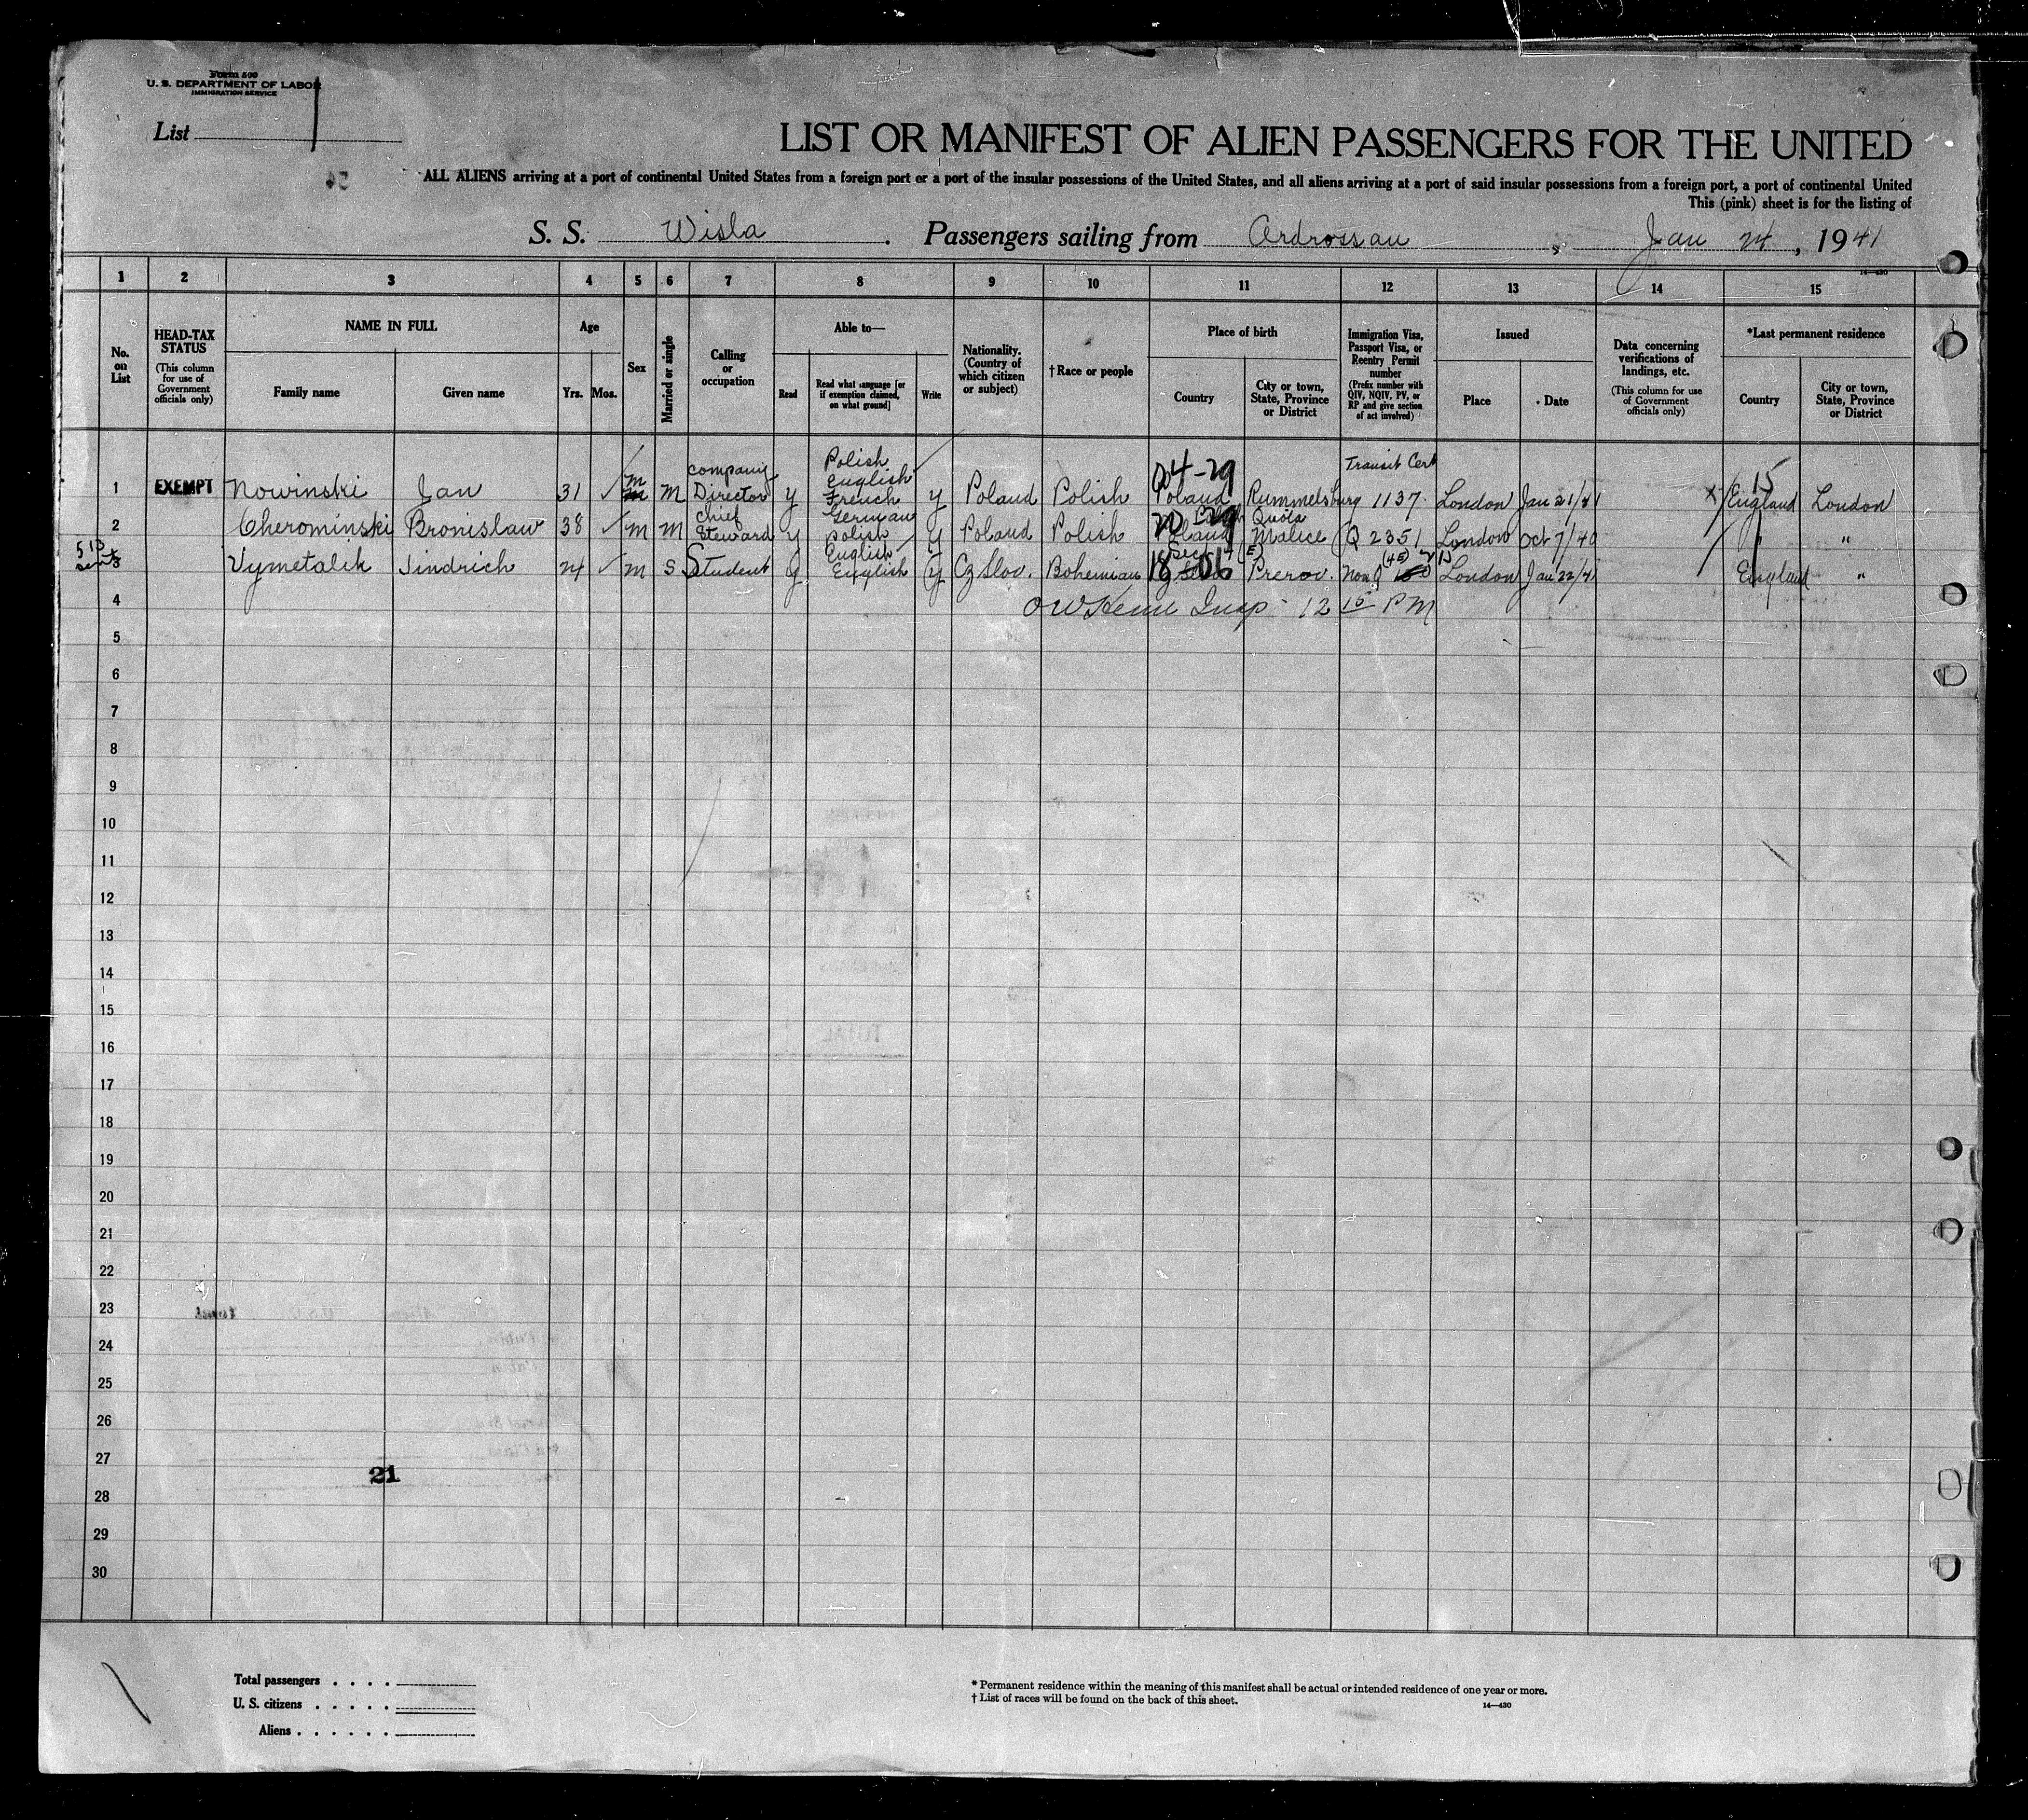 Form 500
U. S. DEPARTMENT OF LABOR
IMMIGRATION SERVICE
List 1
LIST OR MANIFEST OF ALIEN PASSENGERS FOR THE UNITED
ALL ALIENS arriving at a port of continental United States from a foreign port or a port of the insular possessions of the United States, and all aliens arriving at a port of said insular possessions from a foreign port, a port of continental United
This (pink) sheet is for the listing of
S. S. Wisla. Passengers sailing from Ardrossan, Jan 24, 1941
14-430
1 2 3 4 5 6 7 8 9 10 11 12 13 14 15
No. on List
HEAD-TAX STATUS
(This column for use of Government officials only)
NAME IN FULL
Family name
Given name
Age
Yrs. Mos.
Sex
Married or single
Calling or occupation
Able to—
Read
Read what language [or if exemption claimed, on what ground]
Write
Nationality. (Country of which citizen or subject)
†Race or people
Place of birth
Country
City or town, State, Province or District
Immigration Visa, Passport Visa, or Reentry Permit number
(Prefix number with QIV, NQIV, PV, or RP and give section of act involved)
Issued
Place
Date
Data concerning verifications of landings, etc.
(This column for use of Government officials only)
*Last permanent residence
Country
City or town, State, Province or District
1 EXEMPT Nowinski Jan 31 m M company Director y Polish English French German y Poland Polish Poland Rummelsburg Transit Cert 1137 London Jan 21/41 England London
2 Cherominski Bronislaw 38 m M chief Steward y Polish English y Poland Polish Poland Malice Quota Q 2351 London Oct 7/40 " "
3 Vymetalik Jindrich 24 m S Student y English y Cz Slov. Bohemian Prerov. Non Q (4E) London Jan 22/41 England "
4 12 15 PM
5
6
7
8
9
10
11
12
13
14
15
16
17
18
19
20
21
22
23
24
25
26
27
21
28
29
30
Total passengers . . . .
U. S. citizens . . . . .
Aliens . . . . . .
* Permanent residence within the meaning of this manifest shall be actual or intended residence of one year or more.
† List of races will be found on the back of this sheet.
14-430